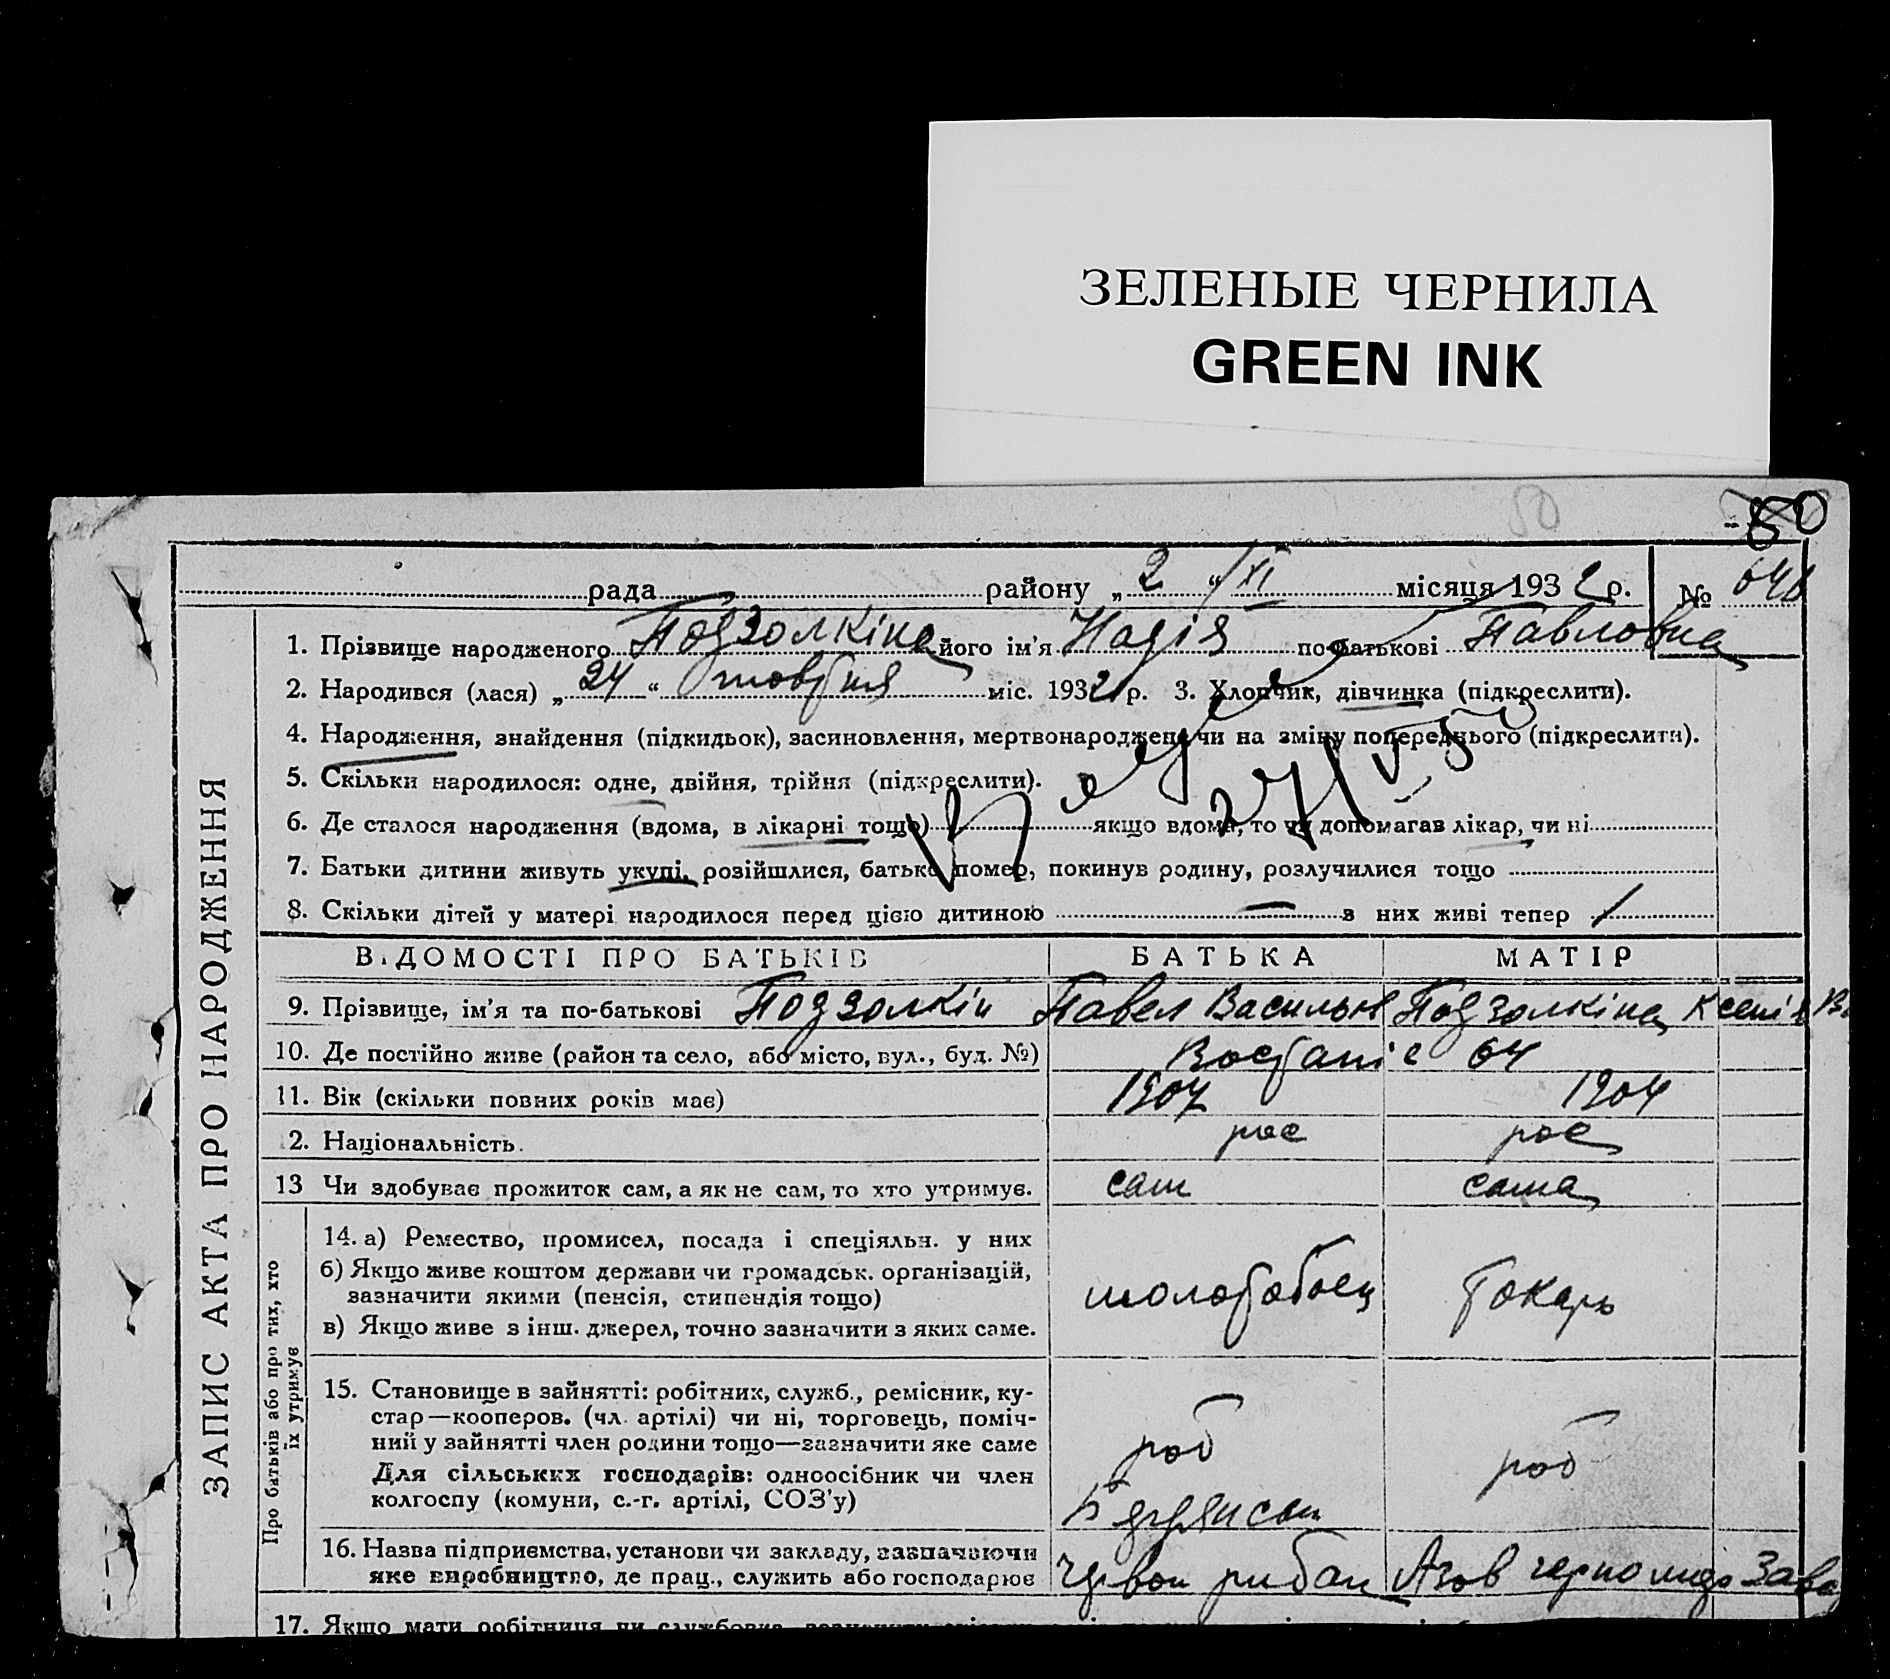 ЗЕЛЕНЫЕ ЧЕРНИЛА
GREEN INK
50
- 50
рада района „ 2 “ XI місяця 1932 р. №
1. Прізвище народженого Подзолкіна його ім'я Надія по-батькові Павловна
2. Народився (лася) „ 24 “ жовтня міс. 1932 р. 3. Хлопчик, дівчинка (підкреслити).
4. Народження, знайдення (підкидьок), засиновлення, мертвонароджене чи на зміну попереднього (підкреслити).
5. Скільки народилося: одне, двійня, трійня (підкреслити).
6. Де сталося народження (вдома, в лікарні тощо) якщо вдома, то чи допомагав лікар, чи ні
7. Батьки дитини живуть укупі, розійшлися, батько помер, покинув родину, розлучилися тощо
8. Скільки дітей у матері народилося перед цією дитиною — з них живі тепер /
ВІДОМОСТІ ПРО БАТЬКІВ БАТЬКА МАТІР
9. Прізвище, ім'я та по-батькові Подзолкін Павел Васильов Подзолкіна Ксенія
10. Де постійно живе (район та село, або місто, вул., буд. №) 64
11. Вік (скільки повних років має) 1907 1904
2. Національність. рос рос
13 Чи здобуває прожиток сам, а як не сам, то хто утримує. сам сама
14. а) Ремество, промисел, посада і спеціяльн. у них
б) Якщо живе коштом держави чи громадськ. організацій,
зазначити якими (пенсія, стипендія тощо)
в) Якщо живе з інш. джерел, точно зазначити з яких саме.
молотобоец токарь
15. Становище в зайнятті: робітник, служб., ремісник, ку-
стар—кооперов. (чл. артілі) чи ні, торговець, поміч-
ний у зайнятті член родини тощо—зазначити яке саме
Для сільських господарів: одноосібник чи член
колгоспу (комуни, с.-г. артілі, СОЗ'у)
роб роб
16. Назва підприємства, установи чи закладу, зазначаючи
яке виробництво, де прац., служить або господарює
Червон рибак Азов
17. Якщо мати робітниця чи службовка,
ЗАПИС АКТА ПРО НАРОДЖЕННЯ
Про батьків або про тих, хто
їх утримує